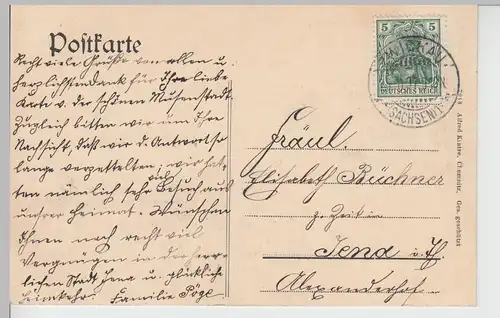 Postkarte
Recht viele Grüße von allen u.
herzlichsten dank für Ihre liebe
Karte v. der schönen Musenstadt
Zugleich bitten wir um Ihre
Nachsicht, daß wir d. Antwort so
lange verzettelten, wir hat-
ten nämlich sehr viel Besuch aus
unsrer Heimat. Wünschen
Ihnen noch recht viel
Vergnügen in der herr-
lichen Stadt Jena u. glückliche
Heimkehr. Familie Pöge
5 5
DEUTSCHES REICH
(SACHSEN)
Fräul.
Elisabeth Büchner
z. Zeit in
Jena i. Th.
Alexanderhof
Alfred Kästner, Chemnitz. Ges. geschützt